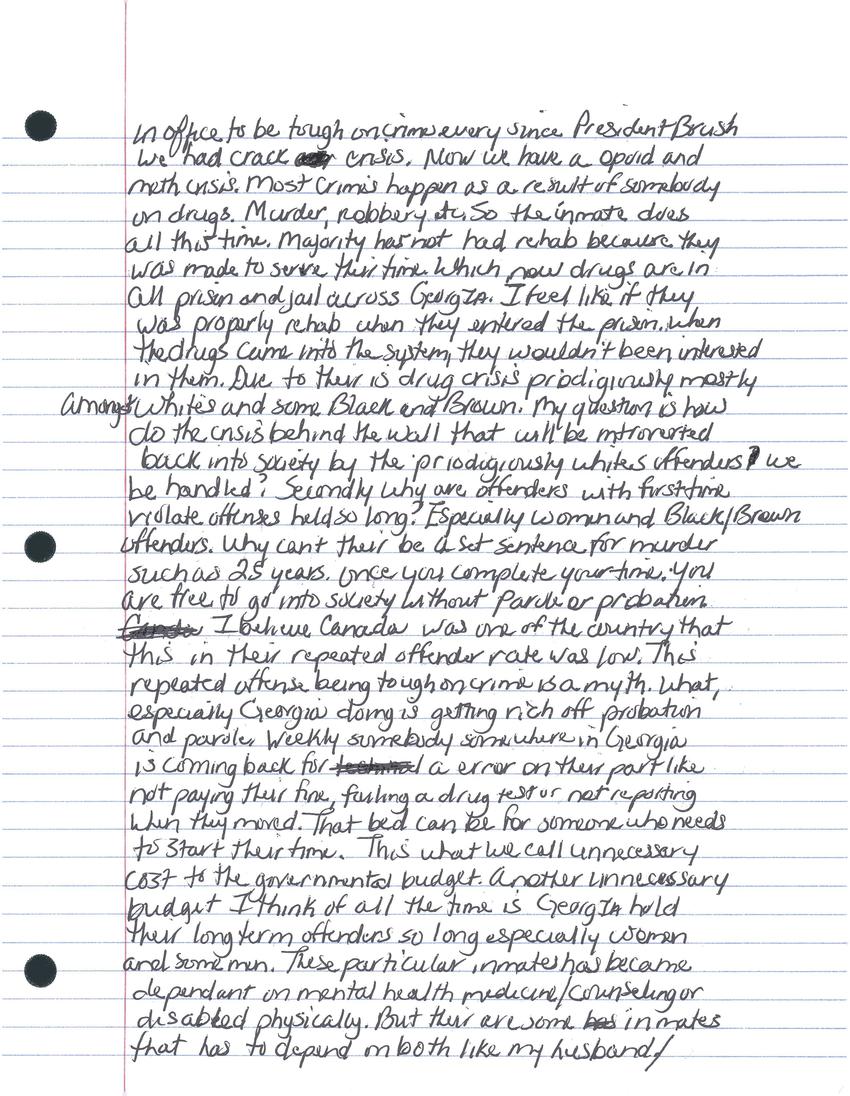 in office to be tough on crime every since President Brush
we had crack crisis. Now we have a opoid and
meth crisis. Most crimis happen as a result of somebody
on drugs. Murder, robbery etc. So the inmate does
all this time. Majority has not had rehab because they
was made to serve their time. Which now drugs are in
all prison and jail across GeorgIA. I feel like if they
was properly rehab when they entered the prison. When
the drugs came into the system, they wouldn't been interested
in them. Due to their is drug crisis prodigiously mostly
Amongst Whites and some Black and Brown. My question is how
do the crisis behind the wall that will be introverted
back into society by the priodigiously whites offenders? we
be handled? Secondly why are offenders with first time
violate offenses held so long? Especially women and Black/Brown
offenders. Why can't their be a set sentence for murder
such as 25 years. Once you complete your time. You
are free to go into society without Parole or probation.
I believe Canada was one of the country that
this in their repeated offender rate was low. This
repeated offense being tough on crime is a myth. What,
especially Georgia doing is getting rich off probation
and parole. Weekly somebody somewhere in Georgia
is coming back for a error on their part like
not paying their fine, failing a drug test or not reporting
when they moved. That bed can be for someone who needs
to start their time. This what we call unnecessary
cost to the governmental budget. Another unnecessary
budget I think of all the time is GeorgIA hold
their long term offenders so long especially women
and some men. These particular inmates has became
dependant on mental health medicine/counseling or
disabled physically. But their are some inmates
that has to depend on both like my husband/